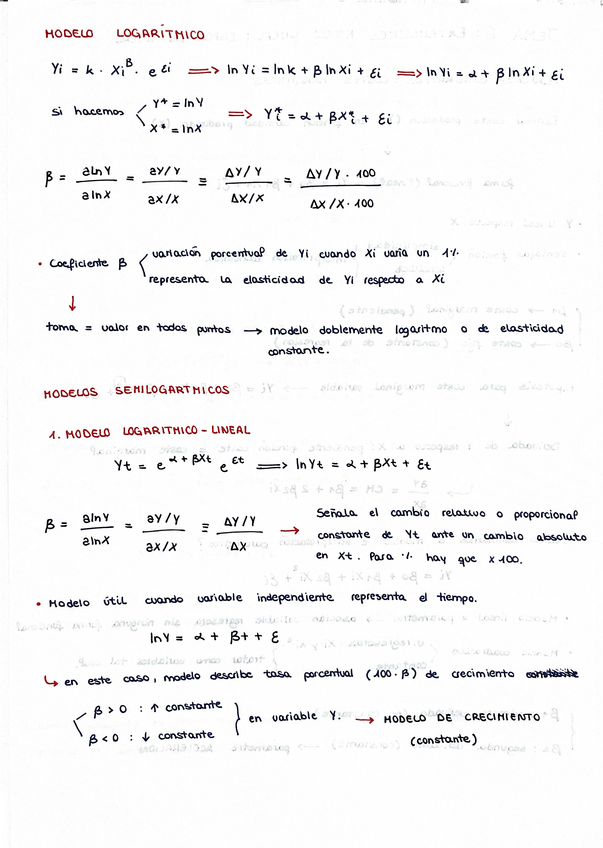 MODELO LOGARÍTMICO
Yi = k · Xi^β · e^εi ⟹ ln Yi = ln k + β ln Xi + εi ⟹ ln Yi = α + β ln Xi + εi
si hacemos < Y* = ln Y ⟹ Yi* = α + βXi* + εi
X* = ln X
β = ∂ln Y / ∂ln X = ∂Y/Y / ∂X/X ≡ ΔY/Y / ΔX/X = ΔY/Y · 100 / ΔX/X · 100
• Coeficiente β < variación porcentual de Yi cuando Xi varía un 1%
representa la elasticidad de Yi respecto a Xi
↓
toma = valor en todos puntos → modelo doblemente logaritmo o de elasticidad
constante.
MODELOS SEMILOGARTMICOS
1. MODELO LOGARITMICO - LINEAL
Yt = e^α + βXt e^εt ⟹ ln Yt = α + βXt + εt
β = ∂ln Y / ∂ln X = ∂Y/Y / ∂X/X ≡ ΔY/Y / ΔX → Señala el cambio relativo o proporcional
constante de Yt ante un cambio absoluto
en Xt. Para % hay que x 100.
• Modelo útil cuando variable independiente representa el tiempo.
ln Y = α + βt + ε
↳ en este caso, modelo describe tasa porcentual (100·β) de crecimiento constante
β > 0 : ↑ constante
β < 0 : ↓ constante } en variable Y. → MODELO DE CRECIMIENTO
(constante)